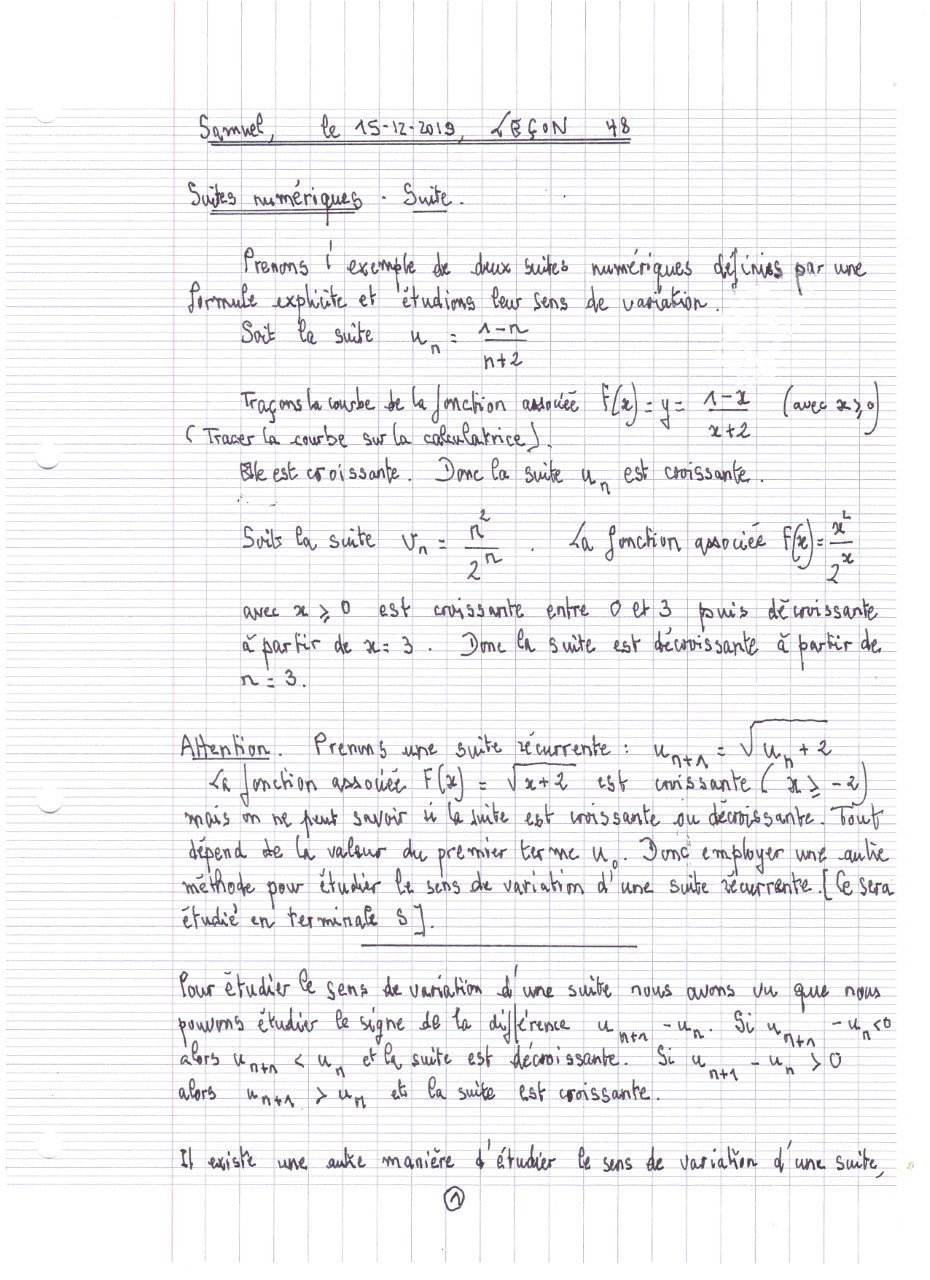 Samuel, le 15-12-2019, LEÇON 48
Suites numériques. Suite.
Prenons l'exemple de deux suites numériques définies par une
formule explicite et étudions leur sens de variation.
Soit la suite u_n = (1-n)/(n+2)
Traçons la courbe de la fonction associée F(x) = y = (1-x)/(x+2) (avec x ⩾ 0)
(Tracer la courbe sur la calculatrice).
Elle est croissante. Donc la suite u_n est croissante.
Soit la suite v_n = n²/2^n. La fonction associée F(x) = x²/2^x
avec x ⩾ 0 est croissante entre 0 et 3 puis décroissante
à partir de x = 3. Donc la suite est décroissante à partir de
n = 3.
Attention. Prenons une suite récurrente : u_{n+1} = √(u_n + 2)
La fonction associée F(x) = √(x+2) est croissante (x ⩾ -2)
mais on ne peut savoir si la suite est croissante ou décroissante. Tout
dépend de la valeur du premier terme u_0. Donc employer une autre
méthode pour étudier le sens de variation d'une suite récurrente. [Ce sera
étudié en terminale S].
Pour étudier le sens de variation d'une suite nous avons vu que nous
pouvons étudier le signe de la différence u_{n+1} - u_n. Si u_{n+1} - u_n < 0
alors u_{n+1} < u_n et la suite est décroissante. Si u_{n+1} - u_n > 0
alors u_{n+1} > u_n et la suite est croissante.
Il existe une autre manière d'étudier le sens de variation d'une suite,
1